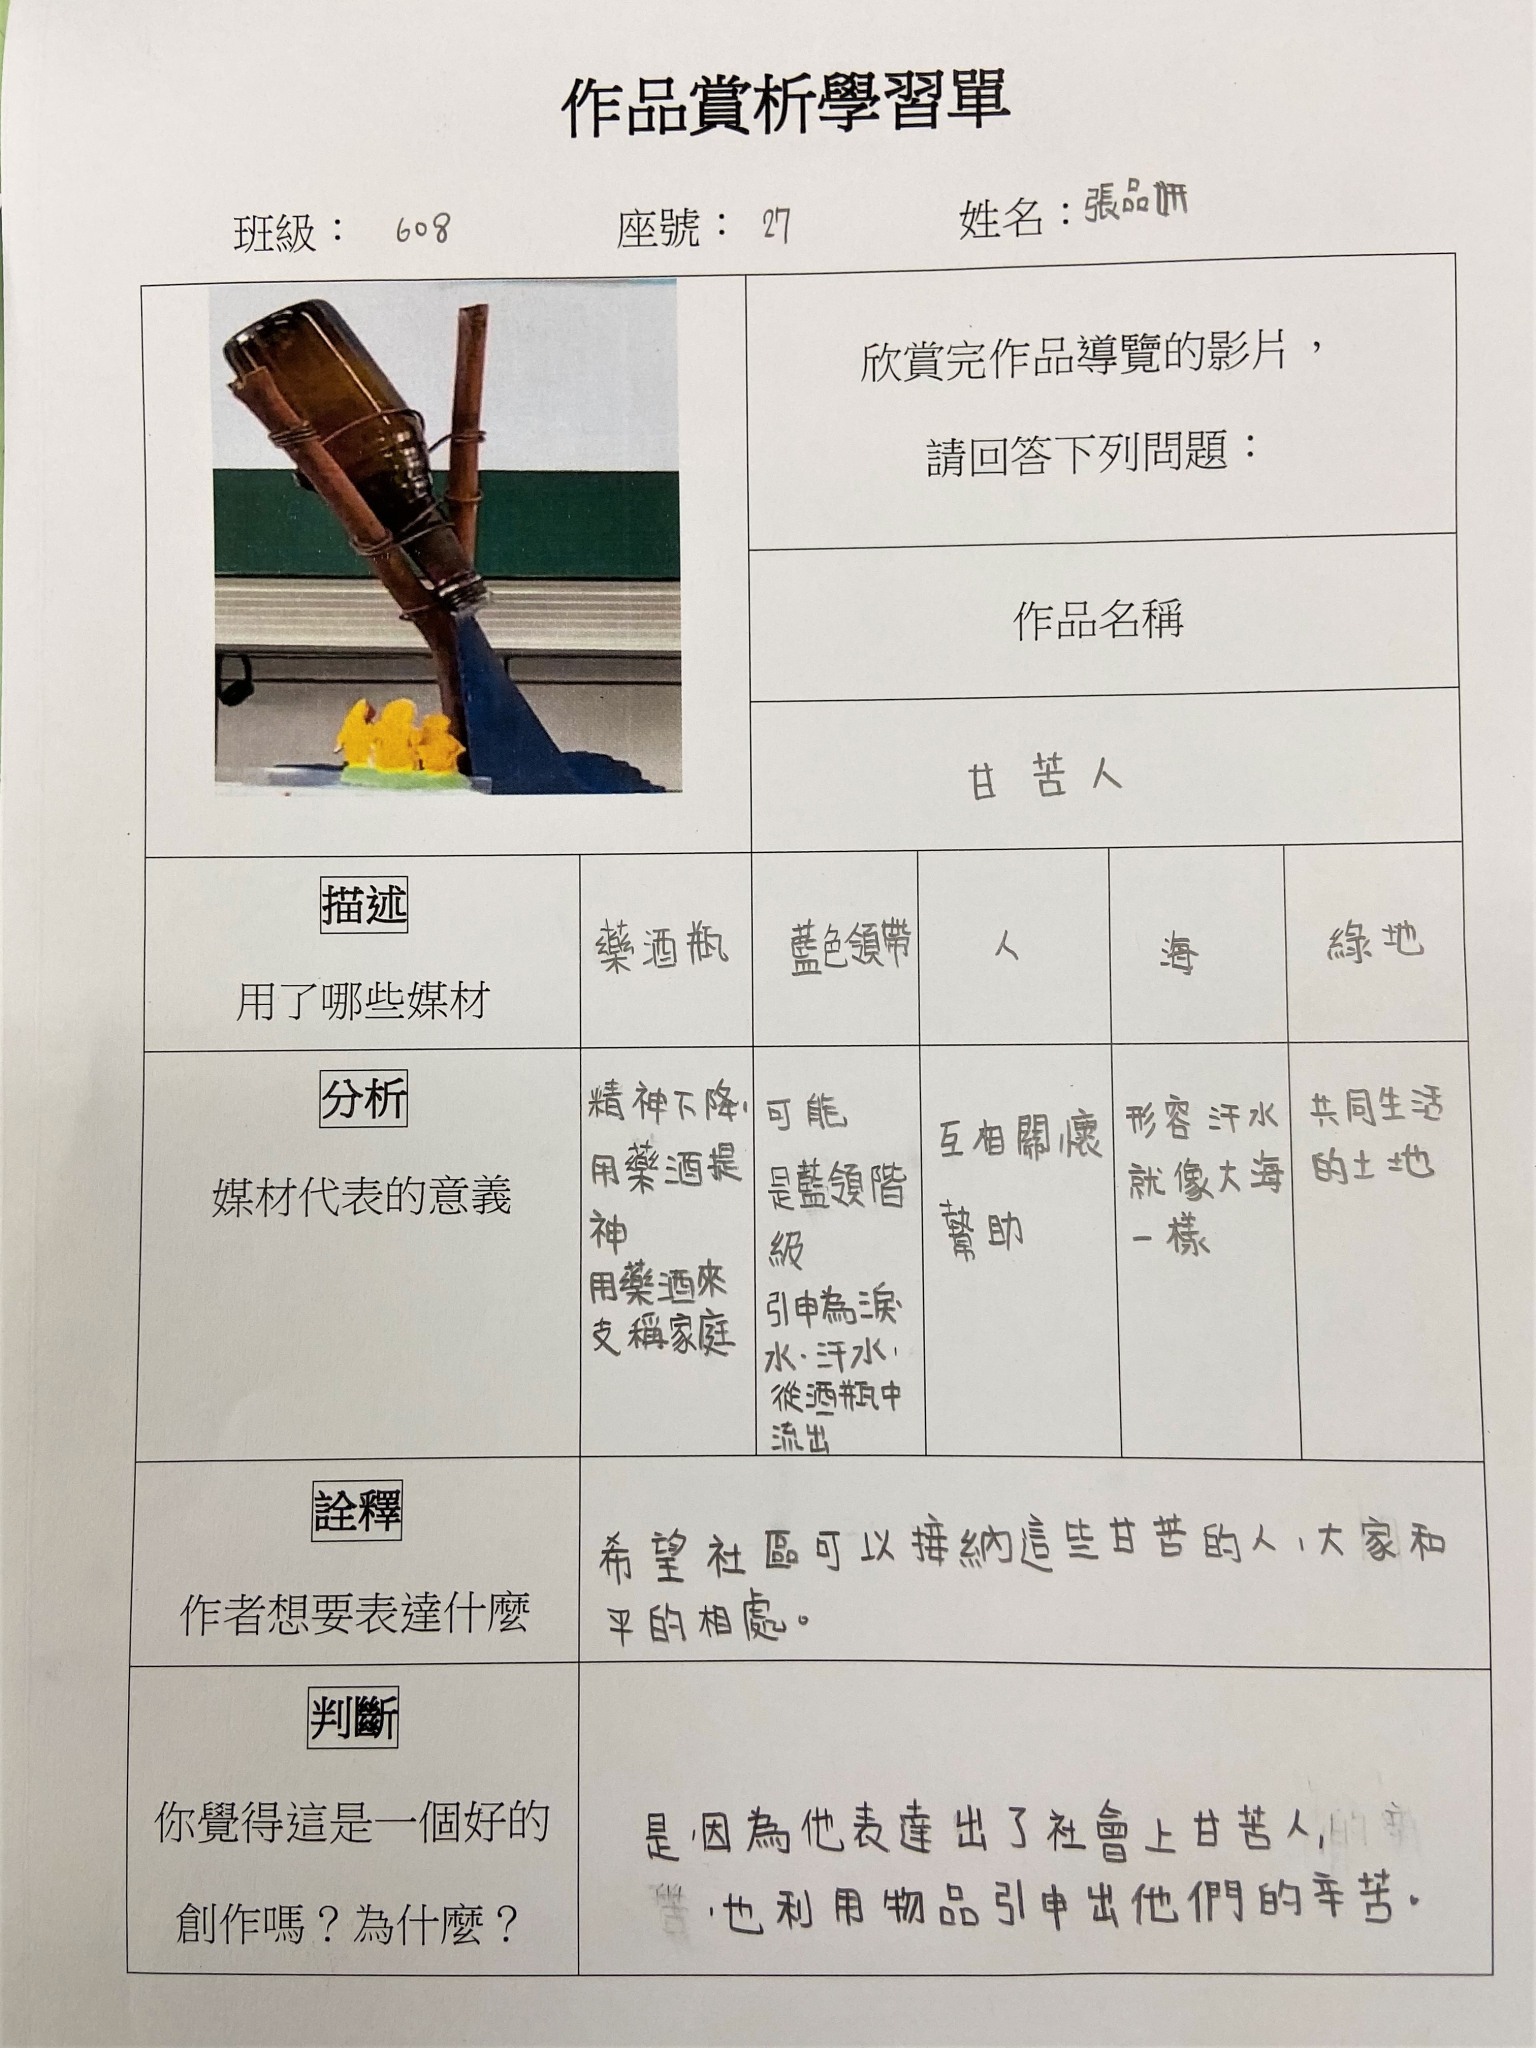 作品賞析學習單
班級： 608 座號： 27 姓名：張品妍
欣賞完作品導覽的影片，
請回答下列問題：
作品名稱
甘苦人
描述
用了哪些媒材
藥酒瓶
藍色領帶
人
海
綠地
分析
媒材代表的意義
精神下降，
用藥酒提
神
用藥酒來
支稱家庭
可能
是藍領階
級
引申為淚
水、汗水，
從酒瓶中
流出
互相關懷
幫助
形容汗水
就像大海
一樣
共同生活
的土地
詮釋
作者想要表達什麼
希望社區可以接納這些甘苦的人，大家和
平的相處。
判斷
你覺得這是一個好的
創作嗎？為什麼？
是，因為他表達出了社會上甘苦人，
，也利用物品引申出他們的辛苦。